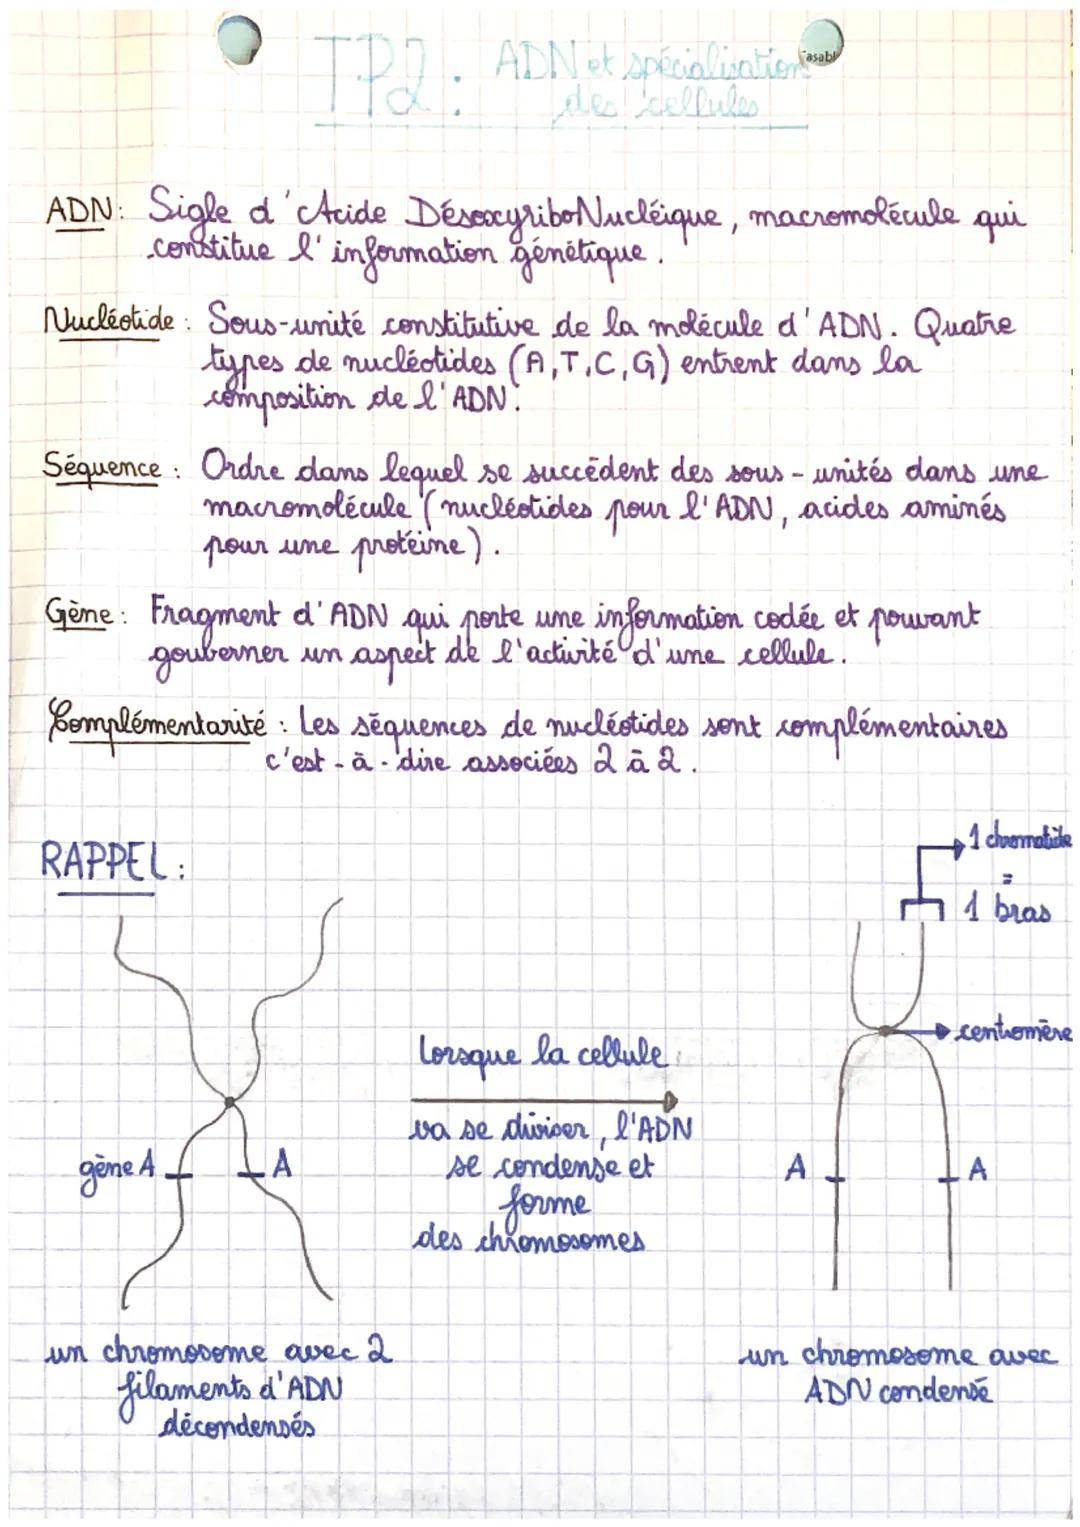 TP2: ADN et spécialisation
des cellules
ADN: Sigle d'Acide DésoxyriboNucléique, macromolécule qui
constitue l'information génétique.
Nucléotide: Sous-unité constitutive de la molécule d'ADN. Quatre
types de nucléotides (A,T,C,G) entrent dans la
composition de l'ADN.
Séquence: Ordre dans lequel se succèdent des sous-unités dans une
macromolécule (nucléotides pour l'ADN, acides aminés
pour une protéine).
Gène: Fragment d'ADN qui porte une information codée et pouvant
gouverner un aspect de l'activité d'une cellule.
Complémentarité: Les séquences de nucléotides sont complémentaires
c'est-à-dire associées 2 à 2.
RAPPEL:
1 chromatide
=
1 bras
centromère
Lorsque la cellule
va se diviser, l'ADN
se condense et
forme
des chromosomes
gène A
A
A
A
un chromosome avec 2
filaments d'ADN
décondensés
un chromosome avec
ADN condensé